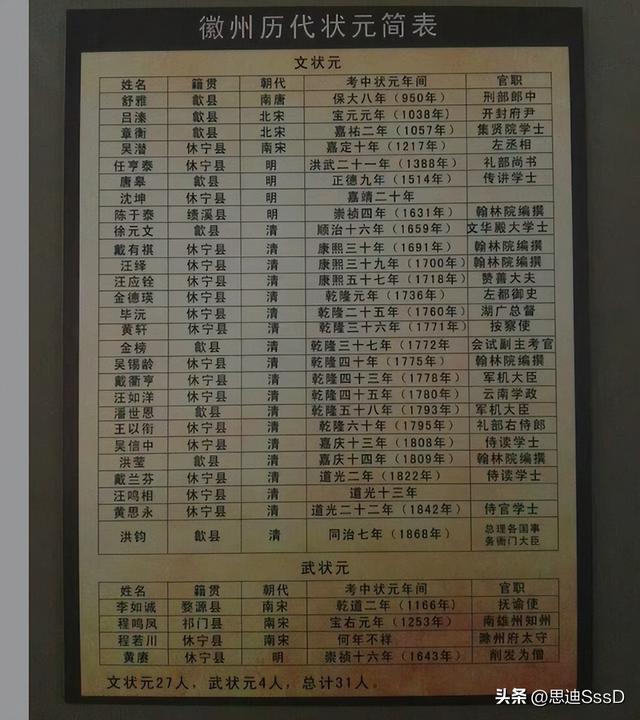 徽州历代状元简表
文状元
姓名 籍贯 朝代 考中状元年间 官职
舒雅 歙县 南唐 保大八年（950年） 刑部郎中
吕溱 歙县 北宋 宝元元年（1038年） 开封府尹
章衡 歙县 北宋 嘉祐二年（1057年） 集贤院学士
吴潜 休宁县 南宋 嘉定十年（1217年） 左丞相
任亨泰 休宁县 明 洪武二十一年（1388年） 礼部尚书
唐皋 歙县 明 正德九年（1514年） 传讲学士
沈坤 休宁县 明 嘉靖二十年
陈于泰 绩溪县 明 崇祯四年（1631年） 翰林院编撰
徐元文 歙县 清 顺治十六年（1659年） 文华殿大学士
戴有祺 休宁县 清 康熙三十年（1691年） 翰林院编撰
汪绎 休宁县 清 康熙三十九年（1700年） 翰林院编撰
汪应铨 休宁县 清 康熙五十七年（1718年） 赞善大夫
金德瑛 休宁县 清 乾隆元年（1736年） 左都御史
毕沅 休宁县 清 乾隆二十五年（1760年） 湖广总督
黄轩 休宁县 清 乾隆三十六年（1771年） 按察使
金榜 歙县 清 乾隆三十七年（1772年 会试副主考官
吴锡龄 休宁县 清 乾隆四十年（1775年） 翰林院编撰
戴衢亨 休宁县 清 乾隆四十三年（1778年） 军机大臣
汪如洋 休宁县 清 乾隆四十五年（1780年） 云南学政
潘世恩 歙县 清 乾隆五十八年（1793年） 军机大臣
王以衔 休宁县 清 乾隆六十年（1795年） 礼部右侍郎
吴信中 休宁县 清 嘉庆十三年（1808年） 侍读学士
洪莹 歙县 清 嘉庆十四年（1809年） 翰林院编撰
戴兰芬 休宁县 清 道光二年（1822年） 侍读学士
汪鸣相 休宁县 清 道光十三年
黄思永 休宁县 清 道光二十二年（1842年） 侍官学士
洪钧 歙县 清 同治七年（1868年） 总理各国事
务衙门大臣
武状元
姓名 籍贯 朝代 考中状元年间 官职
李如诚 婺源县 南宋 乾道二年（1166年） 抚谕使
程鸣凤 祁门县 南宋 宝右元年（1253年） 南雄州知州
程若川 休宁县 南宋 何年不祥 滁州府太守
黄赓 休宁县 明 崇祯十六年（1643年） 削发为僧
文状元27人，武状元4人，总计31人。
头条 @思迪SssD